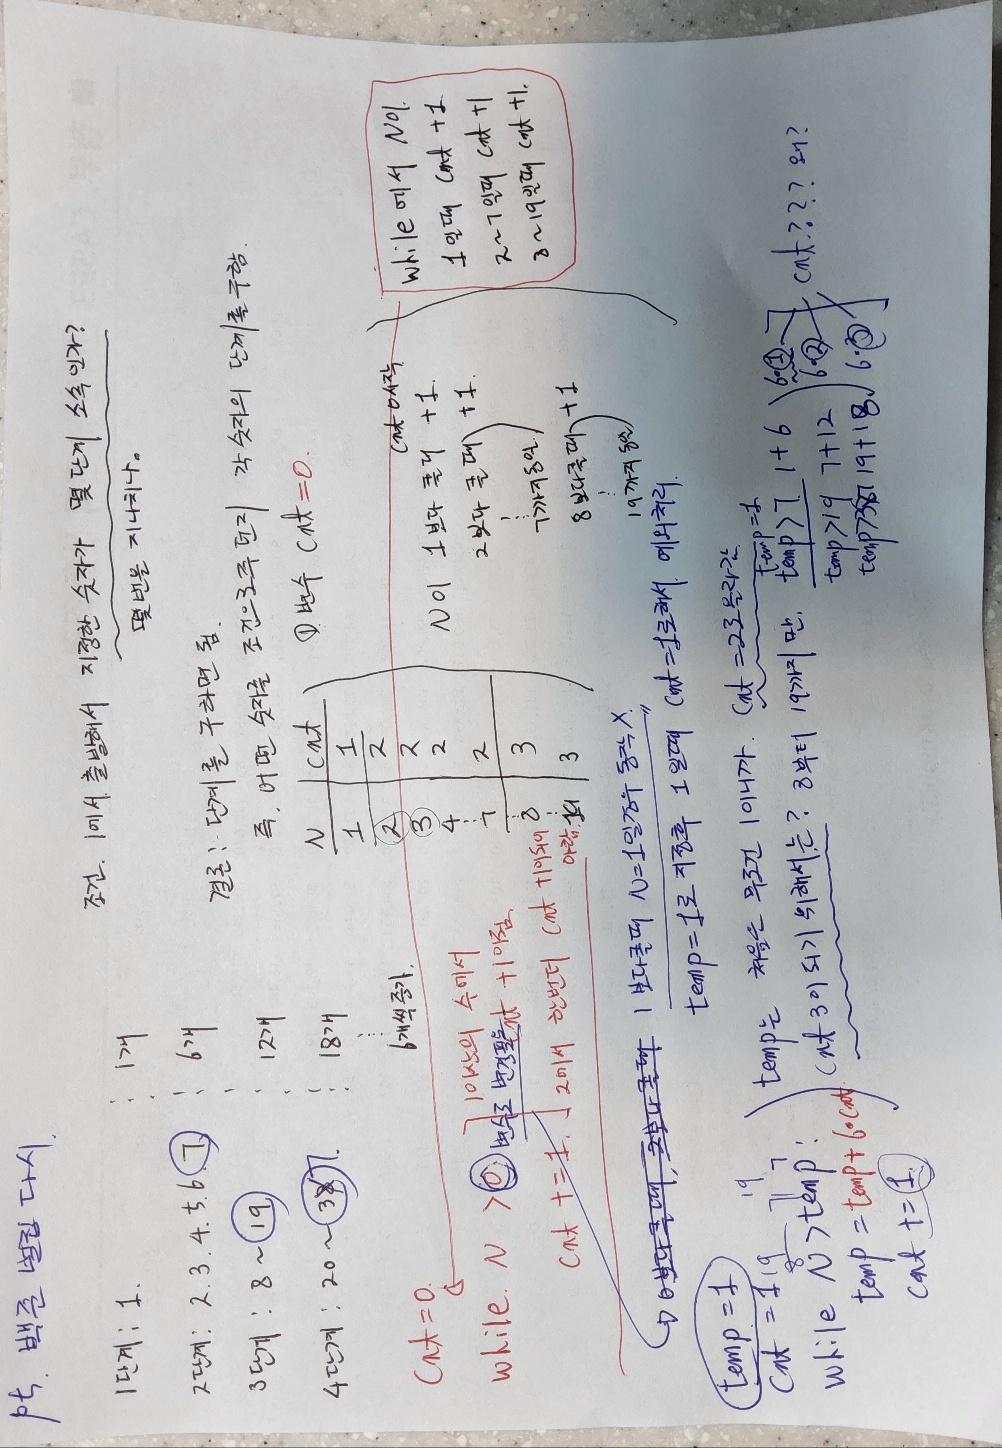 pt. 백준 벌집 다시.
조건. 1에서 출발해서 지정한 숫자가 몇 단계 소속인가?
몇 번을 지나치나.
1단계 : 1. ⋮ 1개
2단계 : 2. 3. 4. 5. 6 7 ⋮ 6개
3단계 : 8 ~ 19 ⋮ 12개
4단계 : 20 ~ 37. ⋮ 18개
⋮ 6개씩 증가.
결론 : 단계를 구하면 됨.
즉, 어떤 숫자를 조건으로 주던지 각 숫자의 단계를 구함.
① 변수 cnt = 0.
N | cnt
1 | 1
2 | 2
3 | 2
4 | 2
⋮
7 | 2
8 | 3
⋮
19 | 3
cnt 0 시작
N이 1보다 클때 +1
2보다 클때 +1.
⋮
7까지 동일
8보다 클때 +1
⋮
19까지 동일
while에서 N이.
1일때 cnt +1.
2~7일때 cnt +1
8~19일때 cnt +1.
cnt = 0.
while. N > 0
1이상의 수에서
변수로 변경필요
cnt +1 이 됨.
cnt += 1.
2에서 한번더 cnt +1이 되어야함.
0보다 클때,
1보다 클때 N=1일 경우 동작 X.
temp = 1로 지정후 1일때 cnt = 1로 해서. 예외처리.
temp = 1
cnt = 1
19 7
8
19
while N > temp:
temp = temp + 6·cnt
cnt += 1.
temp는 처음은 무조건 1이니까. cnt = 2로 올라감.
cnt 3이 되기 위해서는? 8부터 19까지만.
temp = 1
temp > 7 1 + 6 6·①
temp > 19 7 + 12 6·②
temp > 37 19 + 18. 6·③
cnt.??? 왜?